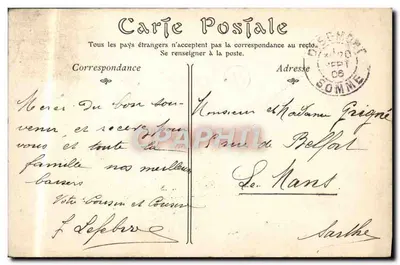 Carte Postale
Tous les pays étrangers n'acceptent pas la correspondance au recto.
Se renseigner à la poste.
Correspondance
Adresse
OISEMONT
20
SEPT
06
SOMME
Merci du bon sou-
venir, et recevez pour
vous et toute la
famille nos meilleurs
baisers
Votre Cousin et Cousine
J Lefebvre
Monsieur et Madame Grigné
8 rue de Belfort
Le Mans
Sarthe
CPAPHIL